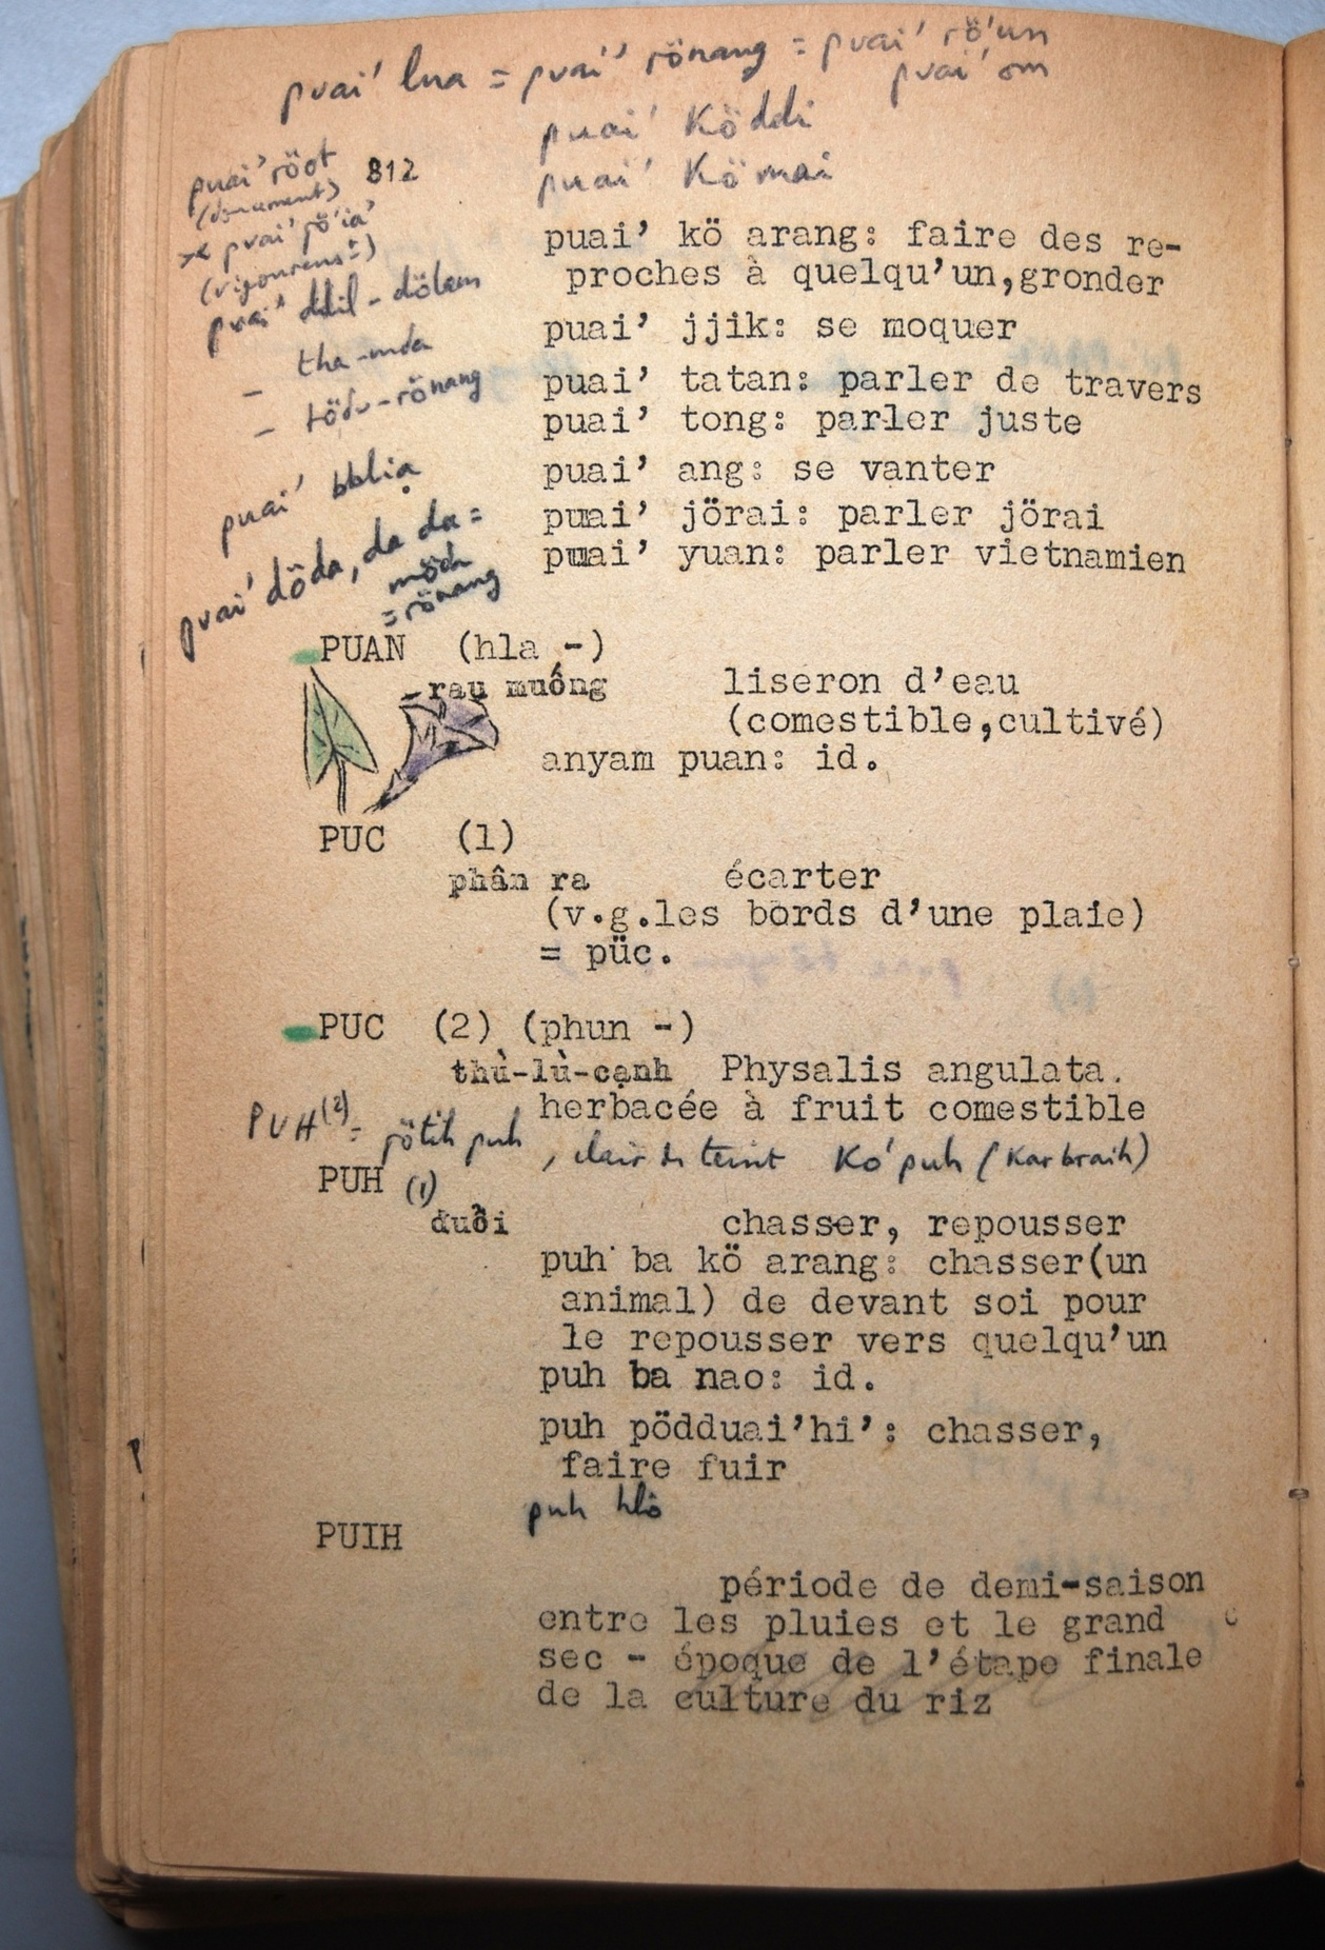 puai' lua = puai' rönang = puai' rö'un
puai' om
puai' Köddi
puai' Kömai
812
puai' röot
(doucement)
≠ puai' pö'ia'
(vigoureus.t)
puai' ddil - dölam
- tha - mda
- tödu - rönang
puai' bblia
puai' döda, da da =
möda
= rönang
puai’ kö arang: faire des re-
proches à quelqu’un,gronder
puai’ jjik: se moquer
puai’ tatan: parler de travers
puai’ tong: parler juste
puai’ ang: se vanter
puai’ jörai: parler jörai
puai’ yuan: parler vietnamien
PUAN (hla -)
-rau muống liseron d’eau
(comestible,cultivé)
anyam puan: id.
PUC (1)
phân ra écarter
(v.g.les bords d’une plaie)
= püc.
PUC (2) (phun -)
thù-lù-cạnh Physalis angulata.
herbacée à fruit comestible
PUH (2) = rötih puh, clair de teint Ko' puh (Karbraih)
PUH (1)
đuổi chasser, repousser
puh ba kö arang: chasser(un
animal) de devant soi pour
le repousser vers quelqu’un
puh ba nao: id.
puh pödduai’hi’: chasser,
faire fuir
puh hlô
PUIH
période de demi-saison
entre les pluies et le grand
sec - époque de l’étape finale
de la culture du riz